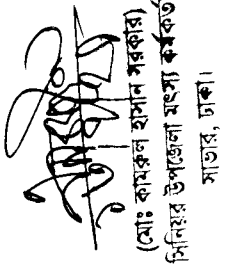 (মোঃ কামরুল হাসান সরকার)
সিনিয়র উপজেলা মৎস্য কর্মকর্ত
সাভার, ঢাকা।